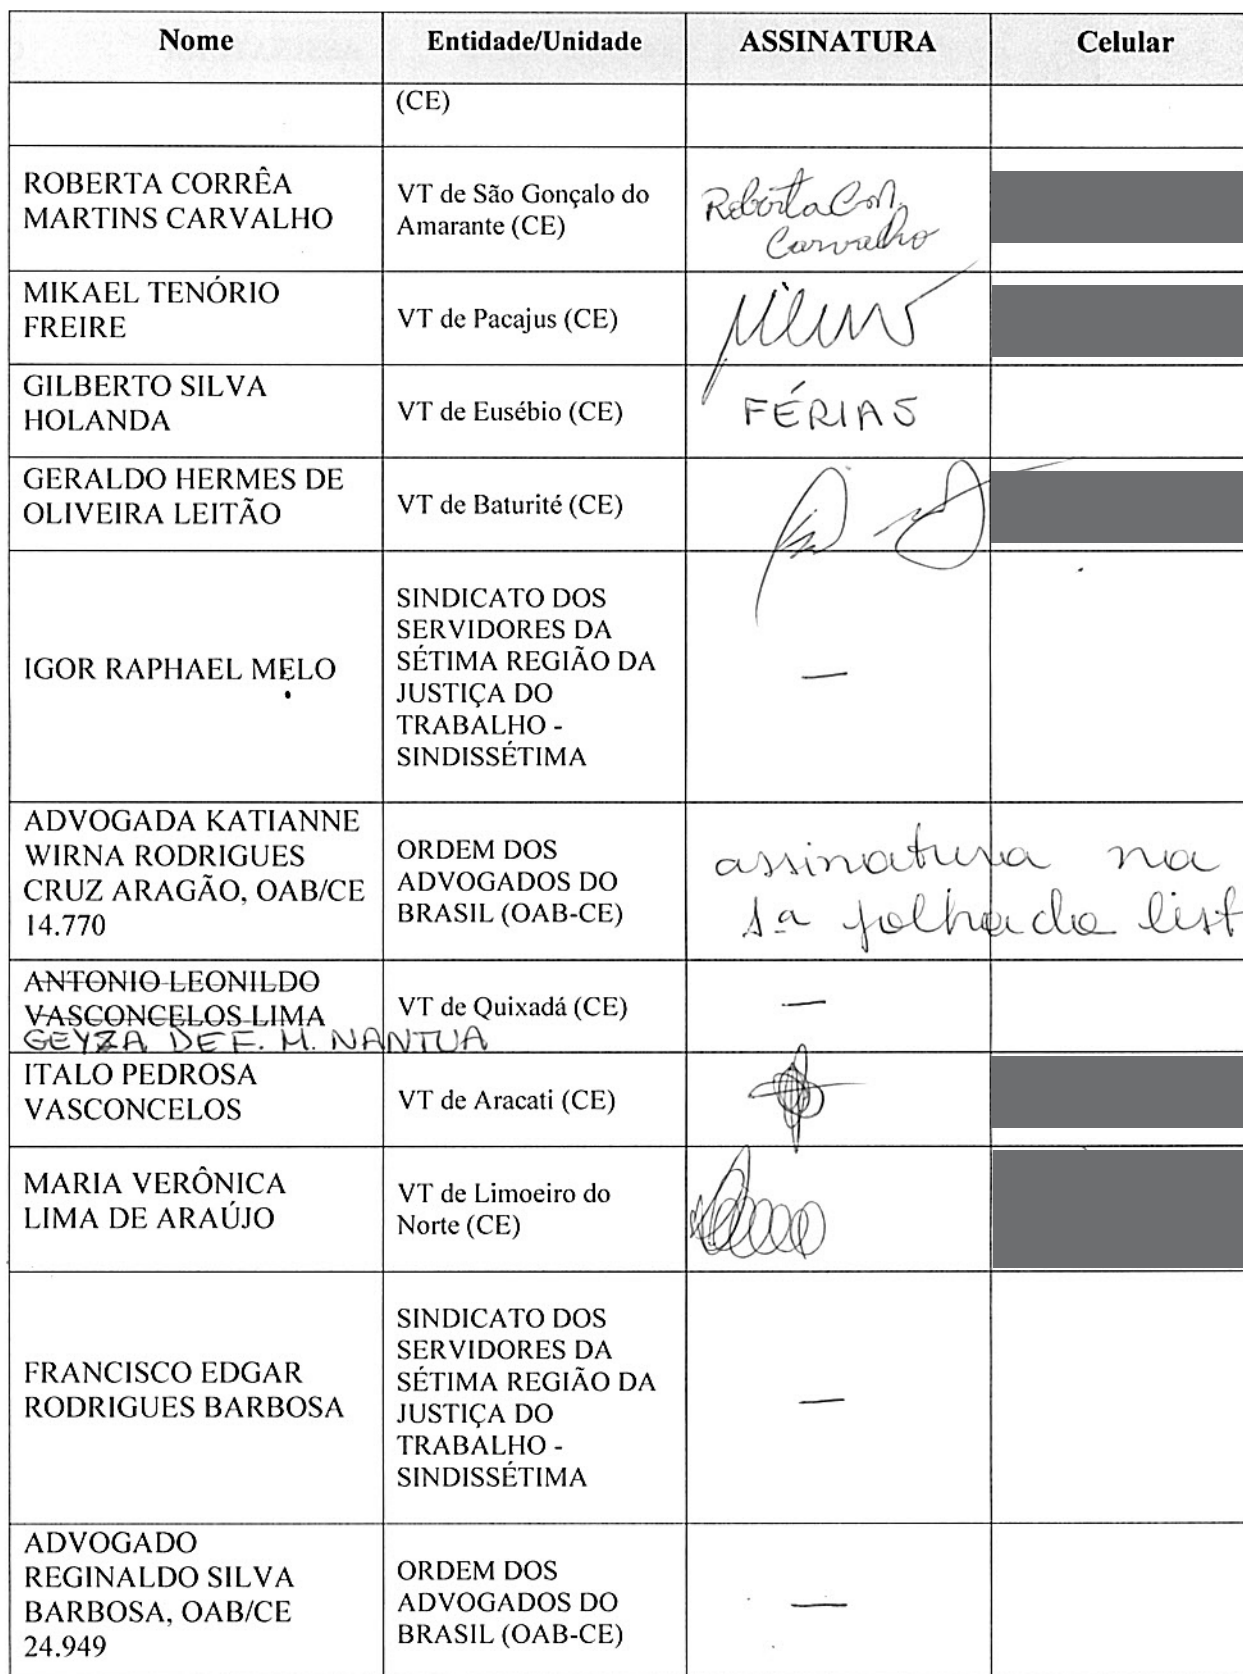 Nome Entidade/Unidade ASSINATURA Celular
(CE)
ROBERTA CORRÊA
MARTINS CARVALHO
VT de São Gonçalo do
Amarante (CE)
Roberta
Carvalho
MIKAEL TENÓRIO
FREIRE
VT de Pacajus (CE)
GILBERTO SILVA
HOLANDA
VT de Eusébio (CE)
FÉRIAS
GERALDO HERMES DE
OLIVEIRA LEITÃO
VT de Baturité (CE)
IGOR RAPHAEL MELO
SINDICATO DOS
SERVIDORES DA
SÉTIMA REGIÃO DA
JUSTIÇA DO
TRABALHO -
SINDISSÉTIMA
—
ADVOGADA KATIANNE
WIRNA RODRIGUES
CRUZ ARAGÃO, OAB/CE
14.770
ORDEM DOS
ADVOGADOS DO
BRASIL (OAB-CE)
assinatura na
1ª folha da list
ANTONIO LEONILDO
VASCONCELOS LIMA
GEYZA DE F. M. NANTUA
VT de Quixadá (CE)
—
ITALO PEDROSA
VASCONCELOS
VT de Aracati (CE)
MARIA VERÔNICA
LIMA DE ARAÚJO
VT de Limoeiro do
Norte (CE)
FRANCISCO EDGAR
RODRIGUES BARBOSA
SINDICATO DOS
SERVIDORES DA
SÉTIMA REGIÃO DA
JUSTIÇA DO
TRABALHO -
SINDISSÉTIMA
—
ADVOGADO
REGINALDO SILVA
BARBOSA, OAB/CE
24.949
ORDEM DOS
ADVOGADOS DO
BRASIL (OAB-CE)
—